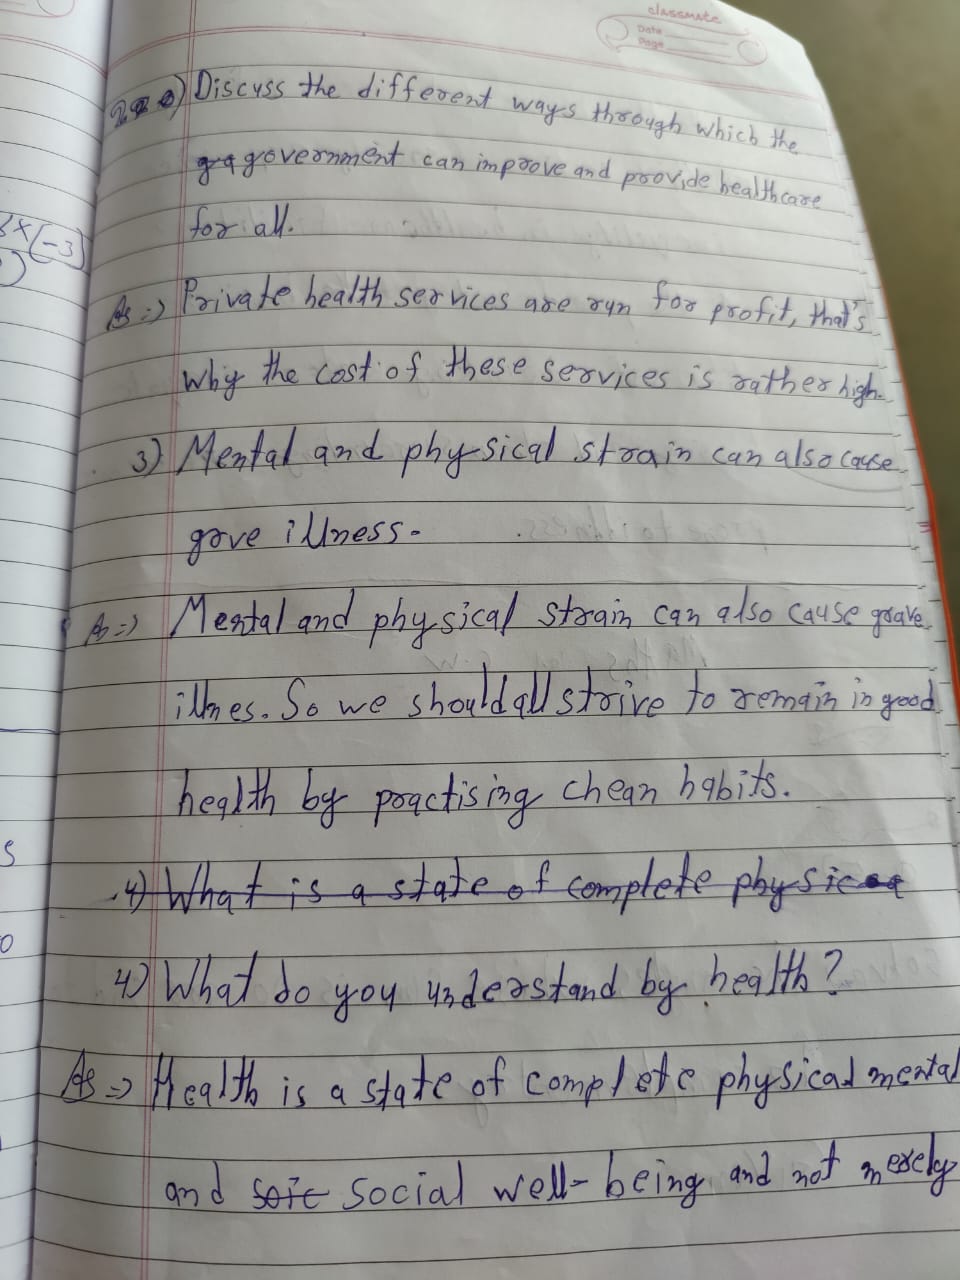 classmate
Date
Page
2) Discuss the different ways through which the
government can improve and provide healthcare
for all.
As => Private health services are run for profit, that's
why the cost of these services is rather high.
3) Mental and physical strain can also cause
grave illness.
As => Mental and physical strain can also cause grave
illnes. So we should all strive to remain in good
health by practising chean habits.
4) What is a state of complete physica
4) What do you understand by health?
As => Health is a state of complete physical mental
and soic social well-being and not merely